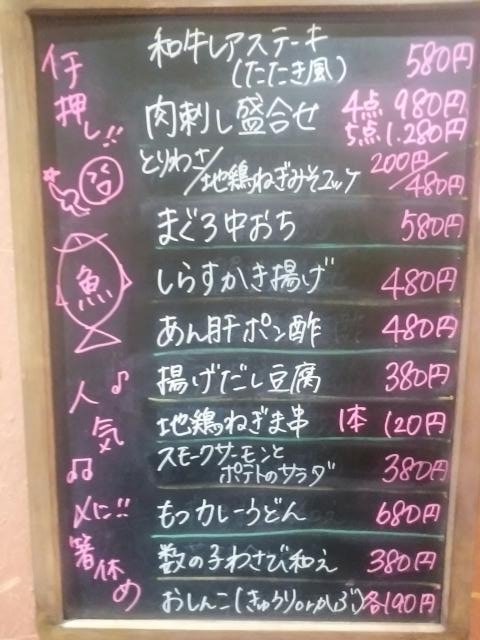 仔押し!!
和牛レアステーキ
(たたき風) 580円
肉刺し盛合せ 4点 980円
5点 1.280円
とりわさ/地鶏ねぎみそユッケ 200円/480円
まぐろ中おち 580円
しらすかき揚げ 480円
魚
あん肝ポン酢 480円
揚げだし豆腐 380円
人気
地鶏ねぎま串 1本 120円
スモークサーモンと
ポテトのサラダ 380円
〆に!!
もつカレーうどん 680円
箸休め
数の子わさび和え 380円
おしんこ(きゅうりorかぶ) 各190円